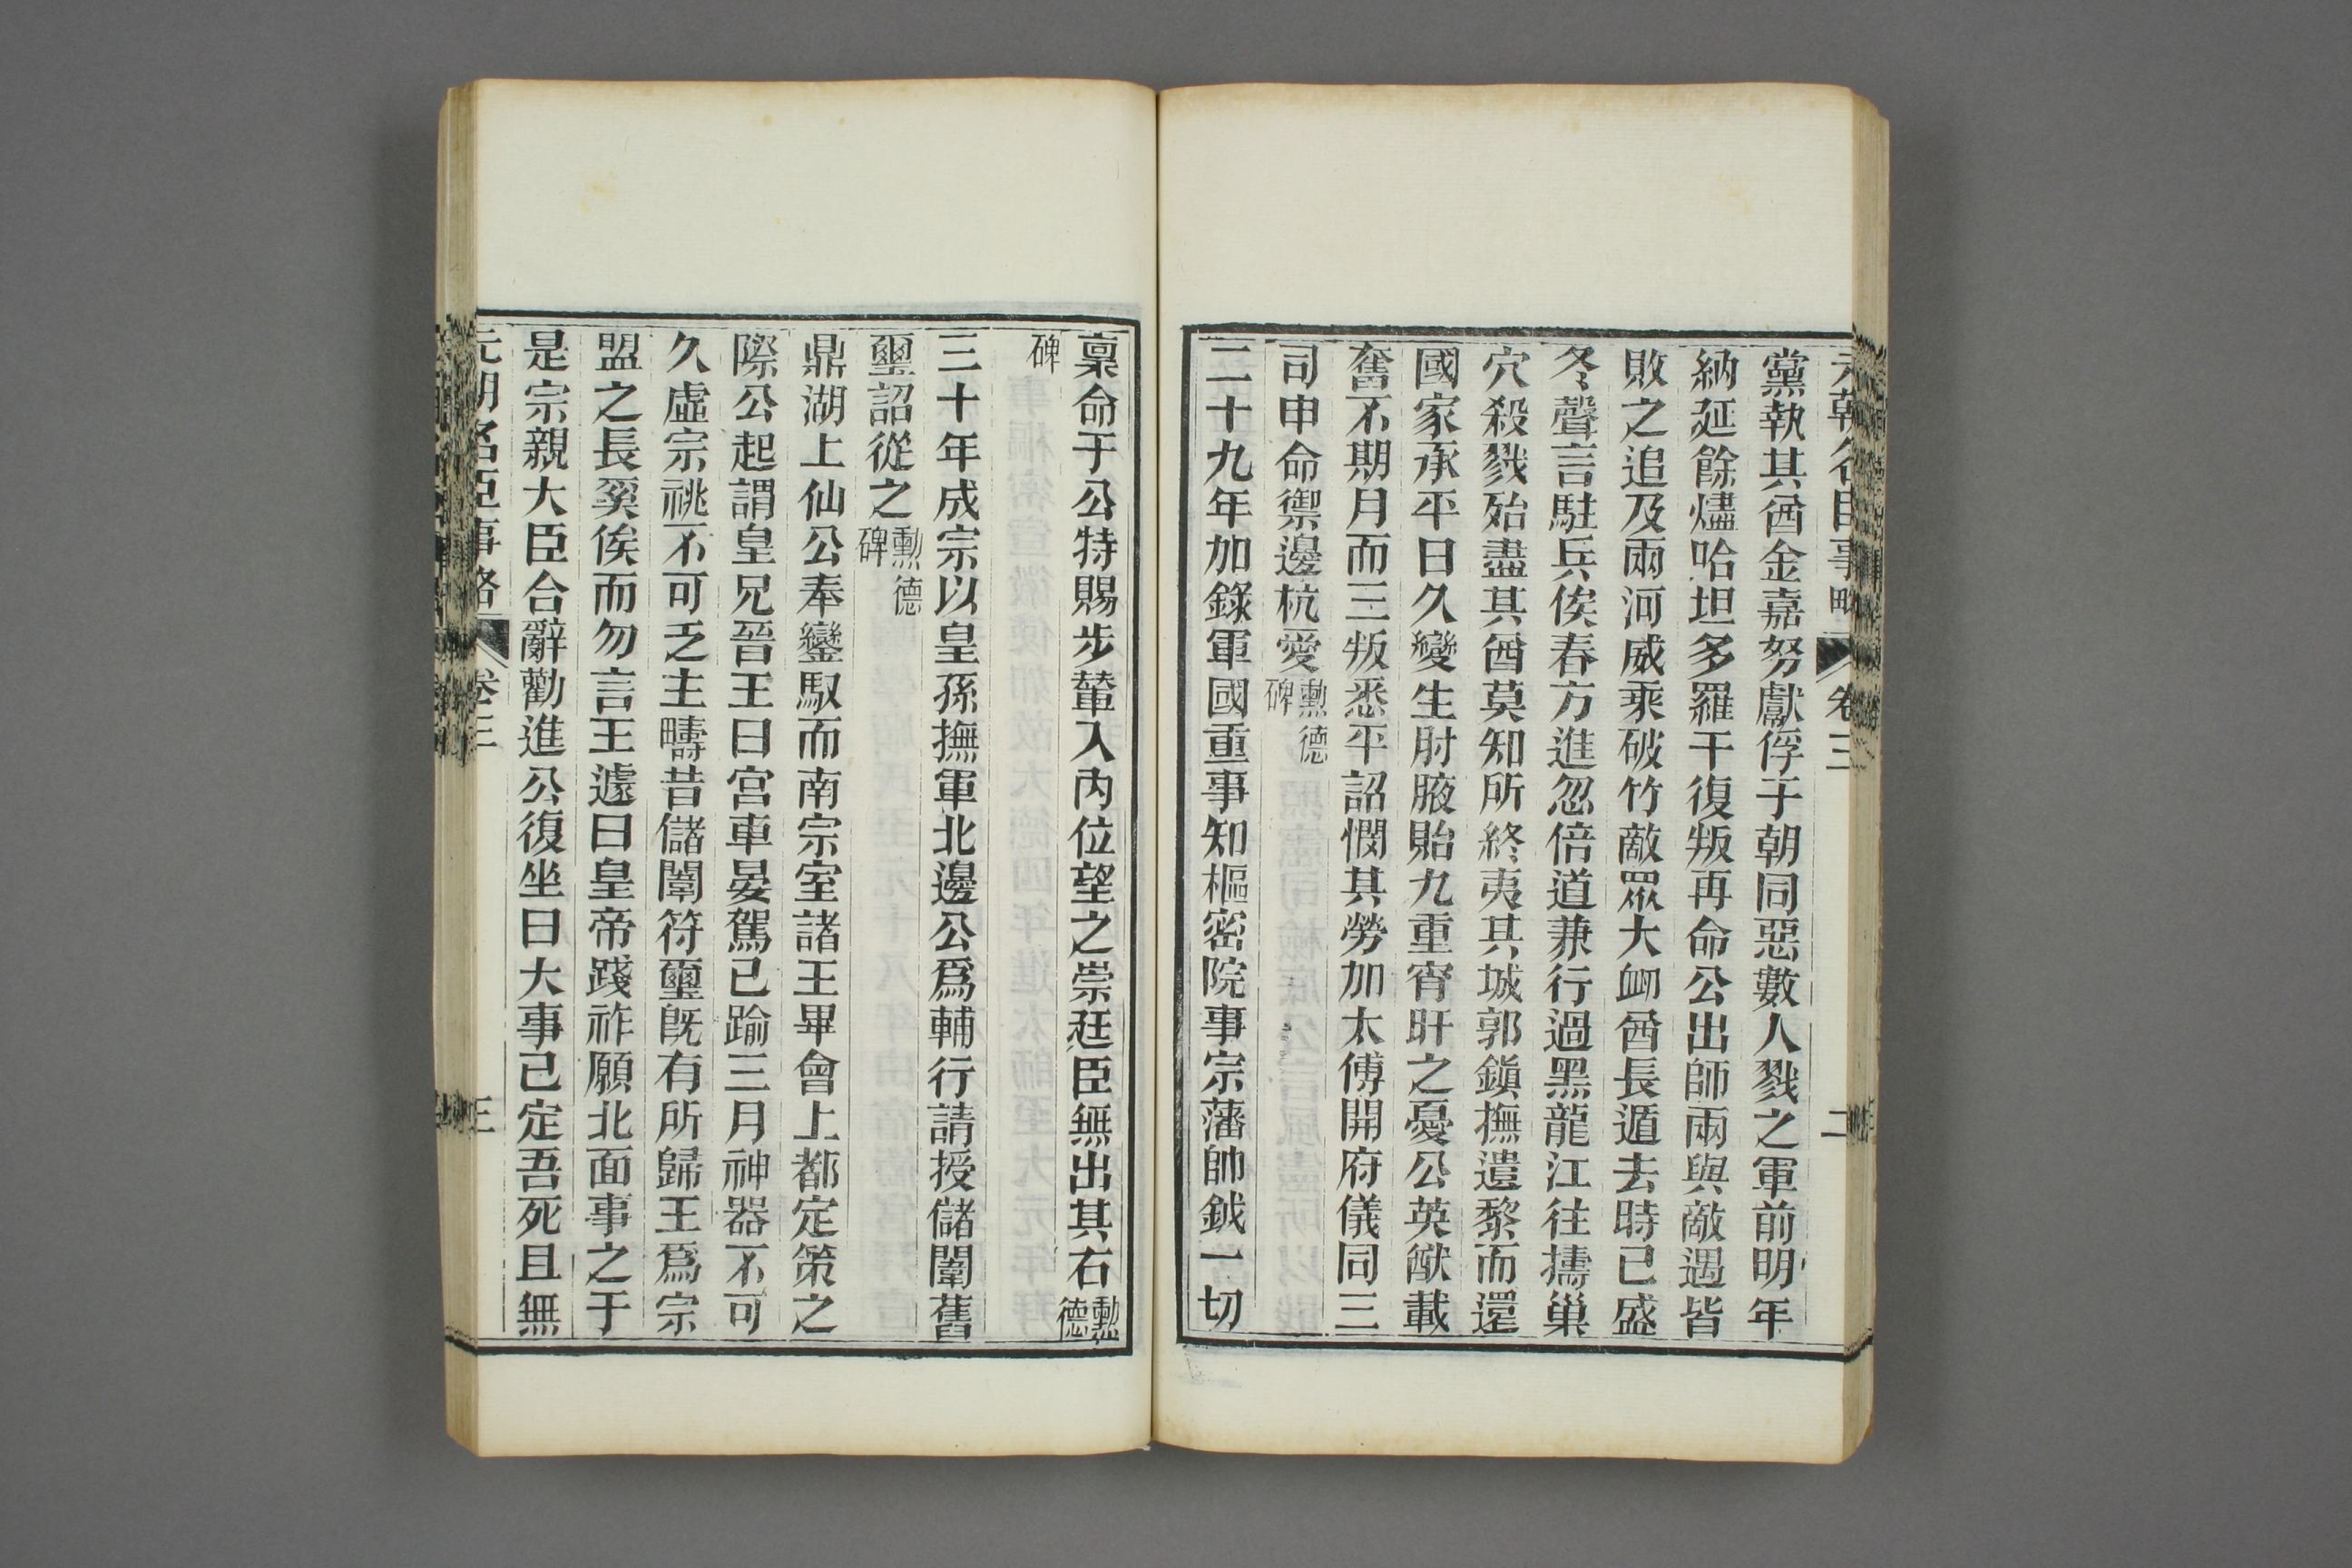 元朝名臣事略 卷三 二
黨執其酋金嘉努獻俘于朝同惡數人戮之軍前明年
納延餘燼哈坦多羅干復叛再命公出師兩與敵遇皆
敗之追及兩河威乘破竹敵眾大衂酋長遁去時已盛
冬聲言駐兵俟春方進忽倍道兼行過黑龍江往擣巢
穴殺戮殆盡其酋莫知所終夷其城郭鎮撫遺黎而還
國家承平日久變生肘腋貽九重宵旰之憂公英猷載
奮不期月而三叛悉平詔憫其勞加太傅開府儀同三
司申命禦邊杭愛勲德碑
二十九年加錄軍國重事知樞密院事宗藩帥鉞一切
稟命于公特賜步輦入內位望之崇廷臣無出其右勲德
碑
三十年成宗以皇孫撫軍北邊公爲輔行請授儲闈舊
璽詔從之勲德碑
鼎湖上仙公奉鑾馭而南宗室諸王畢會上都定策之
際公起謂皇兄晉王曰宮車晏駕已踰三月神器不可
久虛宗祧不可乏主疇昔儲闈符璽既有所歸王爲宗
盟之長奚俟而勿言王遽曰皇帝踐祚願北面事之于
是宗親大臣合辭勸進公復坐曰大事已定吾死且無
元朝名臣事略 卷三 三